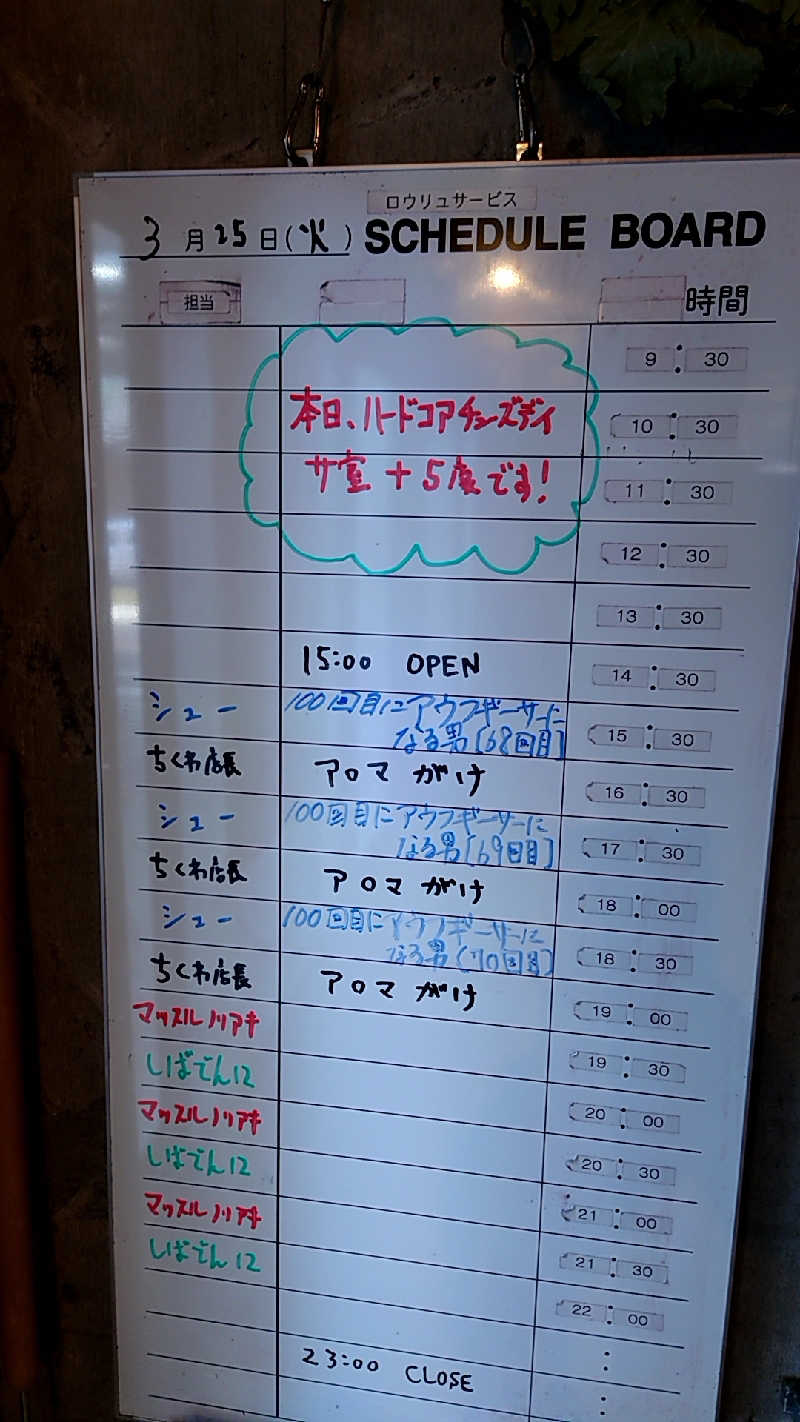 ロウリュサービス
3月25日(火) SCHEDULE BOARD
担当 時間
9:30
本日、ハードコアチューズデイ 10:30
サ室+5度です! 11:30
12:30
13:30
15:00 OPEN 14:30
シュー 100回目にアウフギーサーに
なる男[68回目] 15:30
ちくわ店長 アロマがけ 16:30
シュー 100回目にアウフギーサーに
なる男[69回目] 17:30
ちくわ店長 アロマがけ 18:00
シュー 100回目にアウフギーサーに
なる男(70回目] 18:30
ちくわ店長 アロマがけ 19:00
マッスルノリアキ 19:30
しばでん12 20:00
マッスルノリアキ 20:30
しばでん12 21:00
マッスルノリアキ 21:30
しばでん12 22:00
:
23:00 CLOSE :